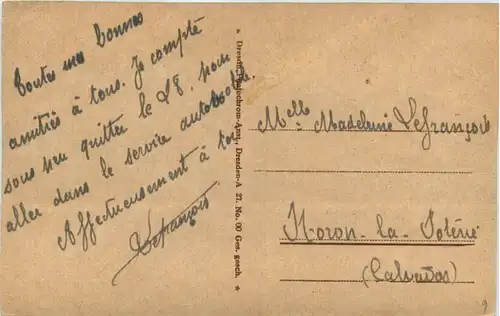 Toutes mes bonnes
amitiés à tous. Je compte
sous peu quitter le 28, pour
aller dans le service automobile.
Affectueusement à tous
Lefrançois
* Dresdn. Photochrom-Anst., Dresden-A 27. No. 00 Ges. gesch. *
Melle Madeleine Lefrançois
Noron-la-Poterie
(Calvados)
9